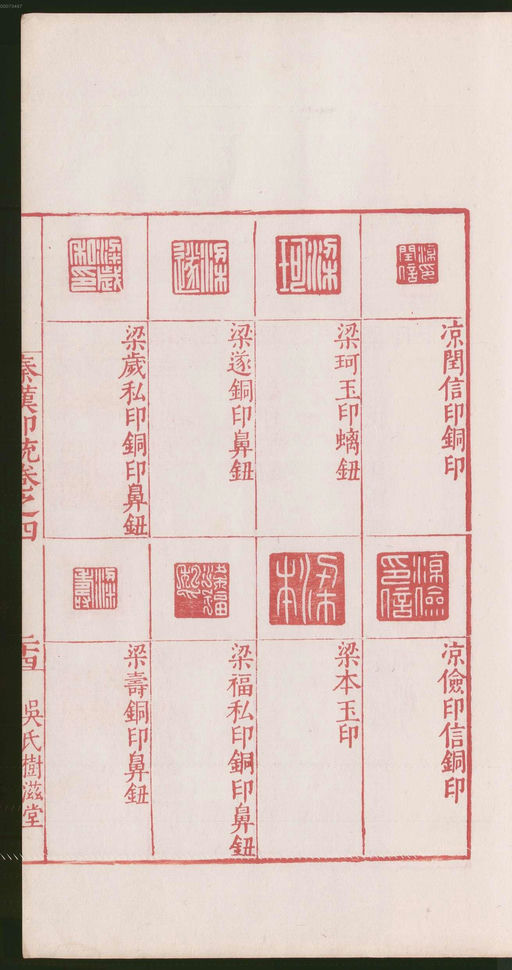 00073447
凉閏信印銅印
梁珂玉印螭鈕
梁遂銅印鼻鈕
梁歲私印銅印鼻鈕
凉儉印信銅印
梁本玉印
梁福私印銅印鼻鈕
梁壽銅印鼻鈕
秦漢印統卷之四
二十四
吳氏樹滋堂